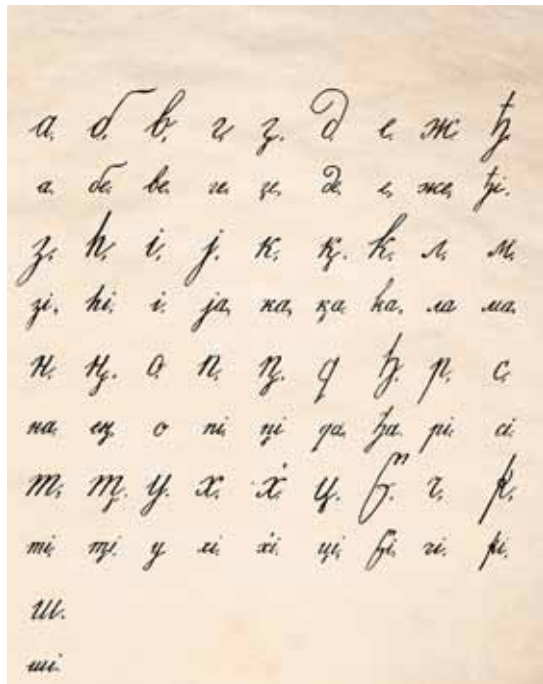 а. б. в. г. ӷ. д. е. ж. ђ.
а. бе. ве. ге. ӷе. де. е. же. ђі.
з. h. і. ј. к. қ. k. л. м.
зі. hі. і. ја. ка. қа. kа. ла. ма.
н. ң. о. п. ԥ. q ђ. р. с.
на. ең. о пі. ԥі qа. ђа. рі. сі.
т. ҭ. у. х. х̇. ц. ч.
ті. ҭі. у хі. х̇і. ці. чі.
ш.
ші.